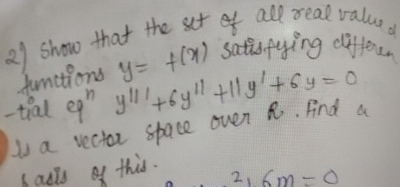 2) Show that the set of all real valued
functions y = f(x) satisfying differen
-tial eqⁿ y''' + 6y'' + 11y' + 6y = 0
is a vector space over R. Find a
basis of this.
6m = 0